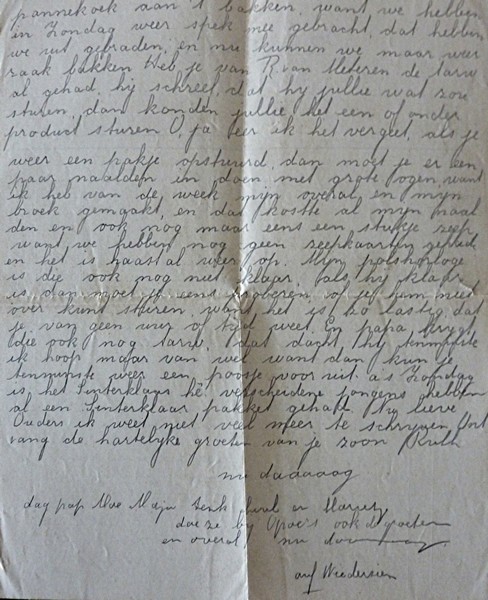 pannekoek aan 't bakken, want we hebben
en Zondag weer spek mee gebracht, dat hebben
we uit gebraden, en nu kunnen we maar weer
raak bakken Heb je van R. van Meteren de tarw
al gehad. hy schreef, dat hy jullie wat zou
sturen, dan konden jullie het een of ander
product sturen O, ja eer ik het vergeet, als je
weer een pakje opstuurd, dan moet je er een
paar naalden in doen met grote ogen, want
ik heb van de week mijn overal en mijn
broek gemaakt, en dat kostte al mijn naal
den en ook nog maar eens een stukje zeep
want we hebben nog geen zeepkaarten gehad
en het is haast al weer op. Mijn polshorloge
is die ook nog niet klaar, als hy klaar
is dan moet je eens proberen of je hem niet
over kunt sturen, want het is zo lastig dat
je van geen uur of tyd weet. En papa krygt
die ook nog tarw, dat dacht hy tenminste
ik hoop maar van wel want dan kun je
tenminste weer een poosje voor uit. a's Zondag
is het Sinterklaas hè, verscheidene jongens hebben
al een Sinterklaas pakket gehad. Hy lieve
Ouders ik weet niet veel meer te schryven Ont
vang de hartelyke groeten van je zoon
nu daaaaag
dag pap Moe en
doe ze by Opoe's ook de groeten
en overal nu
auf Wiedersen